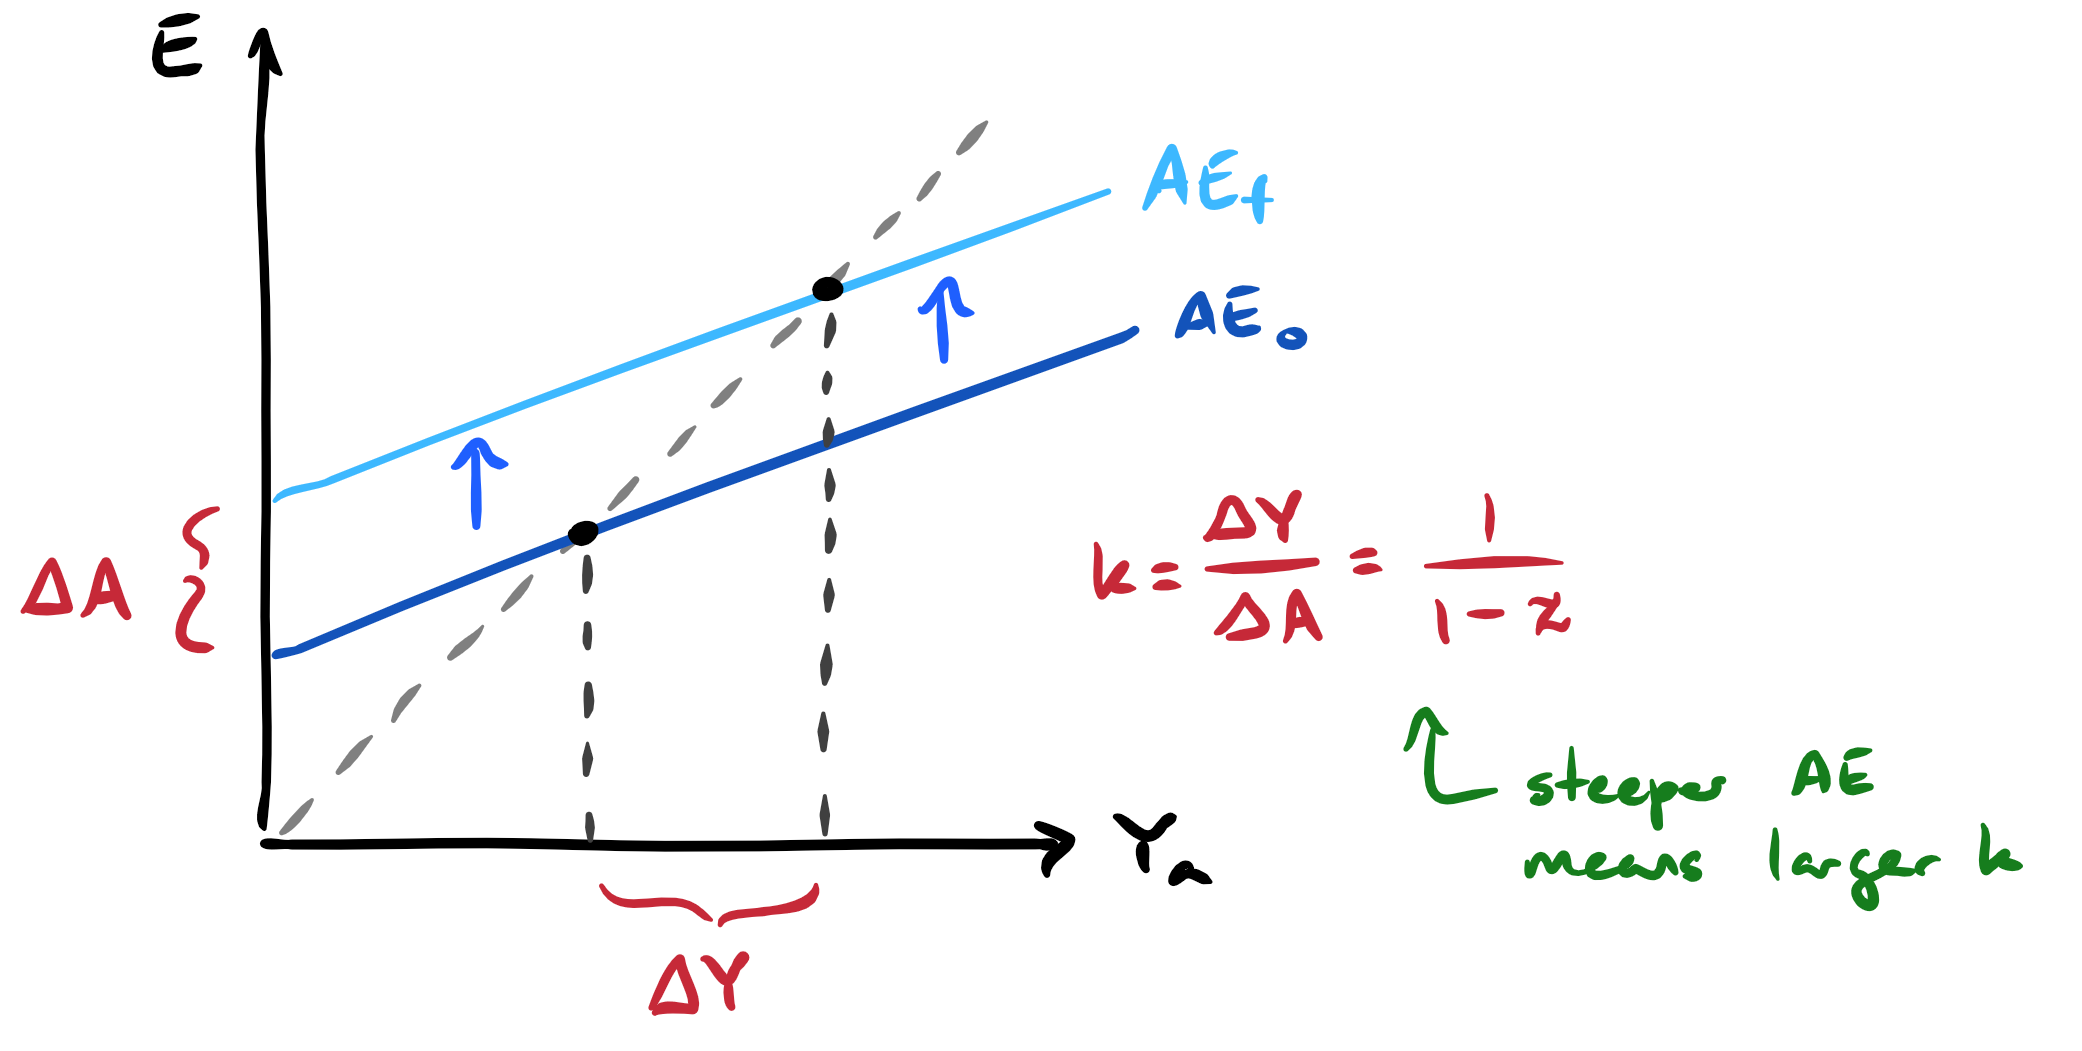 E
AE_f
AE_0
ΔA
k = ΔY/ΔA = 1/(1-z)
steeper AE
means larger k
Y_a
ΔY